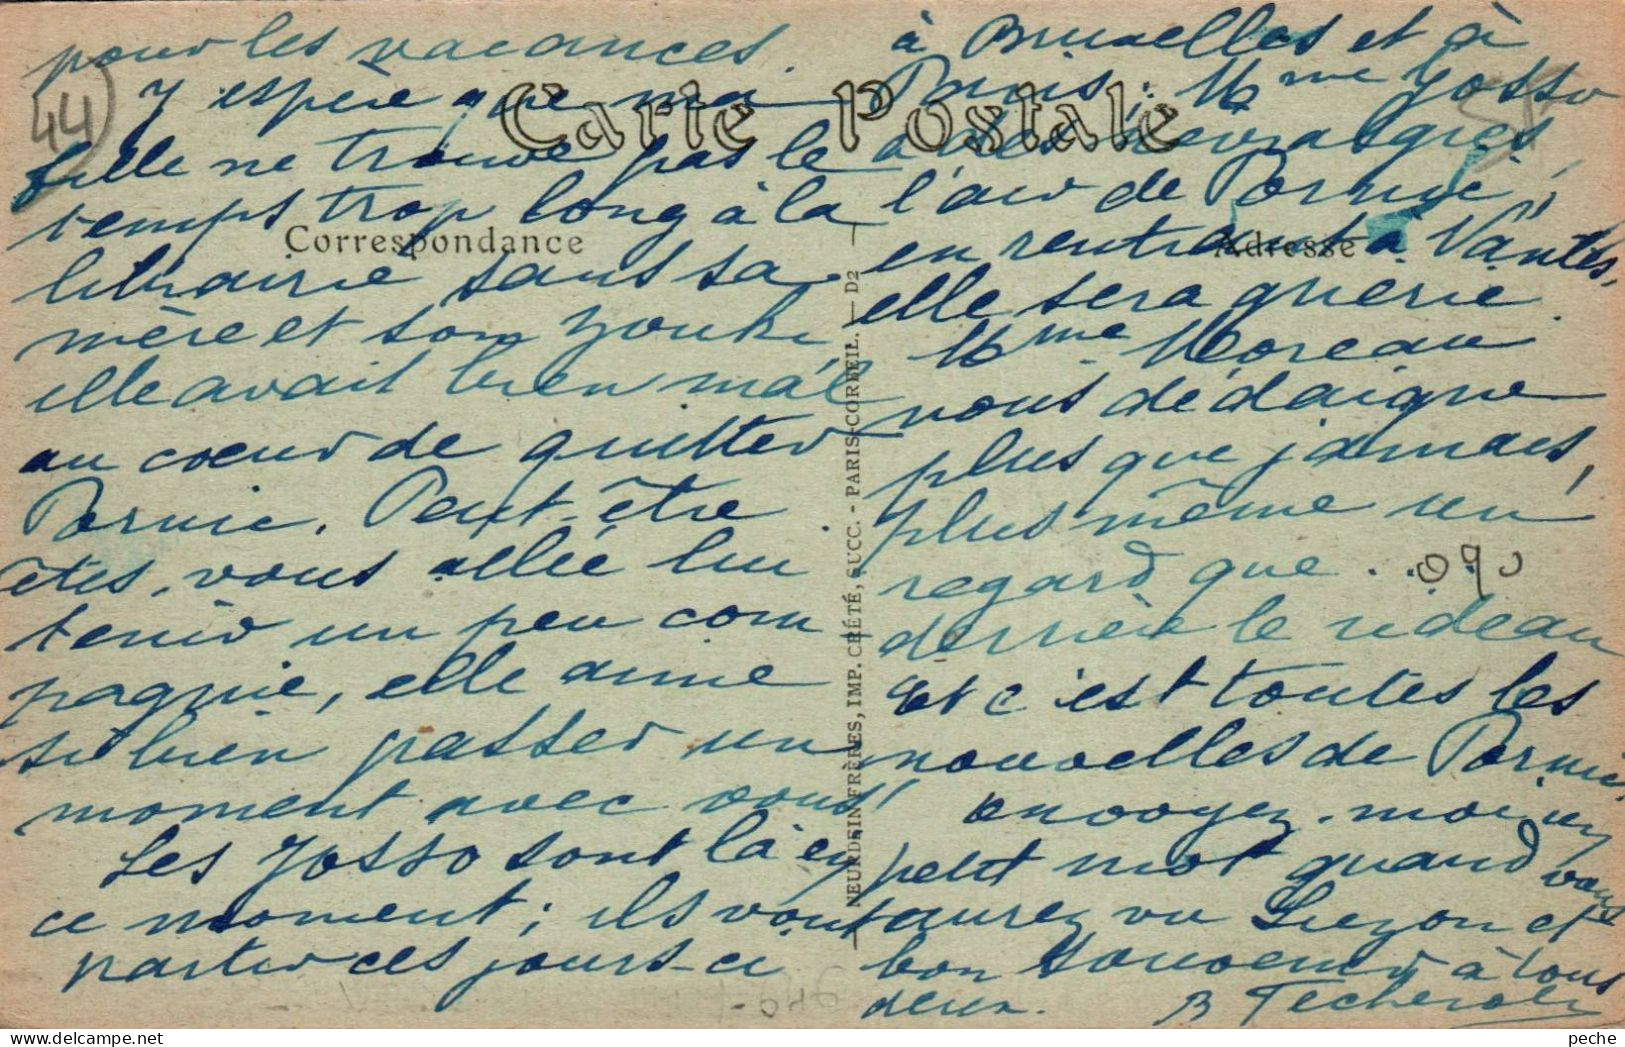 pour les vacances.
J'espère que ma
fille ne trouve pas le
temps trop long à la
librairie sans sa
mère et son Youki
elle avait bien mal
au cœur de quitter
Pornic. Peut-être
êtes-vous allée lui
tenir un peu com
pagnie, elle aime
si bien passer un
moment avec vous!
Les Josso sont là en
ce moment; ils vont
partir ces jours-ci
à Bruxelles et à
Paris; Mme Josso
a des nevralgies,
l'air de Pornic,
en rentrant à Nantes,
elle sera guerie.
Mme Moreau
nous dédaigne
plus que jamais,
plus même un
regard que . . .
derrière le rideau
Et c'est toutes les
nouvelles de Pornic,
envoyez-moi un
petit mot quand vous
aurez vu Suzon et
bon souvenir à tous
deux.
Carte Postale
Correspondance
Adresse
NEURDEIN FRÈRES, IMP. CRÉTÉ, SUCC. - PARIS-CORBEIL. — D2
44
090
946
peche